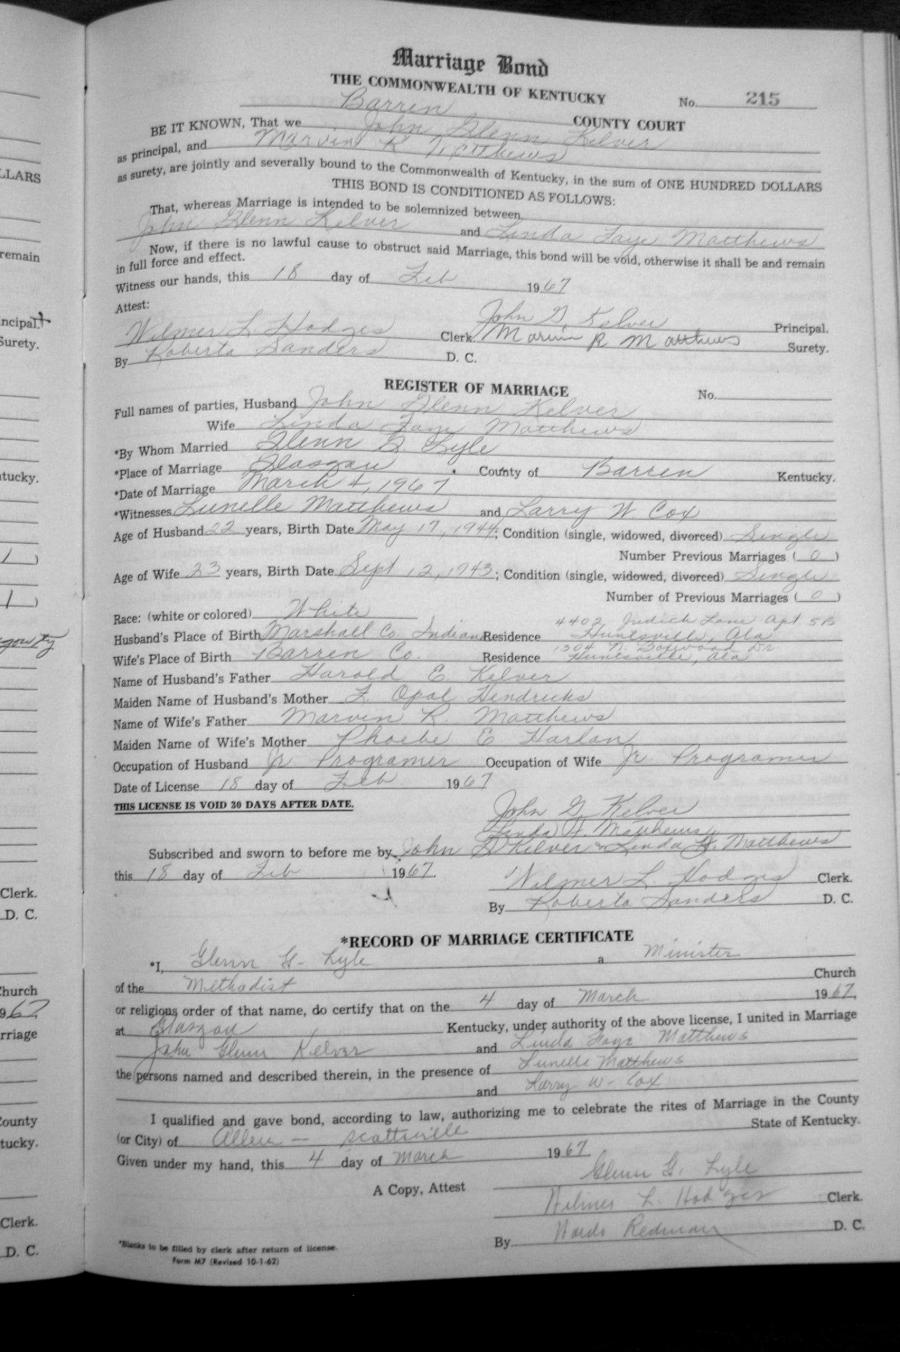 Marriage Bond
THE COMMONWEALTH OF KENTUCKY No. 215
Barren COUNTY COURT
BE IT KNOWN, That we John Glenn Kelver
as principal, and Marvin R Matthews
as surety, are jointly and severally bound to the Commonwealth of Kentucky, in the sum of ONE HUNDRED DOLLARS
THIS BOND IS CONDITIONED AS FOLLOWS:
That, whereas Marriage is intended to be solemnized between
John Glenn Kelver and Linda Faye Matthews
Now, if there is no lawful cause to obstruct said Marriage, this bond will be void, otherwise it shall be and remain
in full force and effect.
Witness our hands, this 18 day of Feb 1967
Attest:
John G Kelver Principal.
Wilmer L. Hodges Clerk. Marvin R Matthews Surety.
By Roberta Sanders D. C.
REGISTER OF MARRIAGE
Full names of parties, Husband John Glenn Kelver No.
Wife Linda Faye Matthews
*By Whom Married Glenn G Lyle
*Place of Marriage Glasgow County of Barren Kentucky.
*Date of Marriage March 4, 1967
*Witnesses Lunelle Matthews and Larry W Cox
Age of Husband 22 years, Birth Date May 17, 1944; Condition (single, widowed, divorced) Single
Number Previous Marriages ( 0 )
Age of Wife 23 years, Birth Date Sept 12, 1943; Condition (single, widowed, divorced) Single
Number of Previous Marriages ( 0 )
Race: (white or colored) White
4402 Judith Lane Apt 5B
Husband's Place of Birth Marshall Co. Indiana Residence Huntsville, Ala
1304 N. Boxwood Dr
Wife's Place of Birth Barren Co. Residence Huntsville, Ala
Name of Husband's Father Harold E. Kelver
Maiden Name of Husband's Mother F. Opal Hendricks
Name of Wife's Father Marvin R. Matthews
Maiden Name of Wife's Mother Phoebe E Harlan
Occupation of Husband Jr Programer Occupation of Wife Jr. Programer
Date of License 18 day of Feb 1967
THIS LICENSE IS VOID 30 DAYS AFTER DATE.
John G Kelver
Linda F. Matthews
Subscribed and sworn to before me by John G Kelver Linda F. Matthews
this 18 day of Feb 1967.
Wilmer L Hodges Clerk.
By Roberta Sanders D. C.
*RECORD OF MARRIAGE CERTIFICATE
*I, Glenn G. Lyle a Minister
of the Methodist Church
or religious order of that name, do certify that on the 4 day of March 1967,
at Glasgow Kentucky, under authority of the above license, I united in Marriage
John Glenn Kelver and Linda Faye Matthews
the persons named and described therein, in the presence of Lunelle Matthews
and Larry W. Cox
I qualified and gave bond, according to law, authorizing me to celebrate the rites of Marriage in the County
(or City) of Allen - Scottsville State of Kentucky.
Given under my hand, this 4 day of March 1967
Glenn G. Lyle
A Copy, Attest Wilmer L. Hodges Clerk.
By Redman D. C.
*Blanks to be filled by clerk after return of license.
Form M7 (Revised 10-1-62)